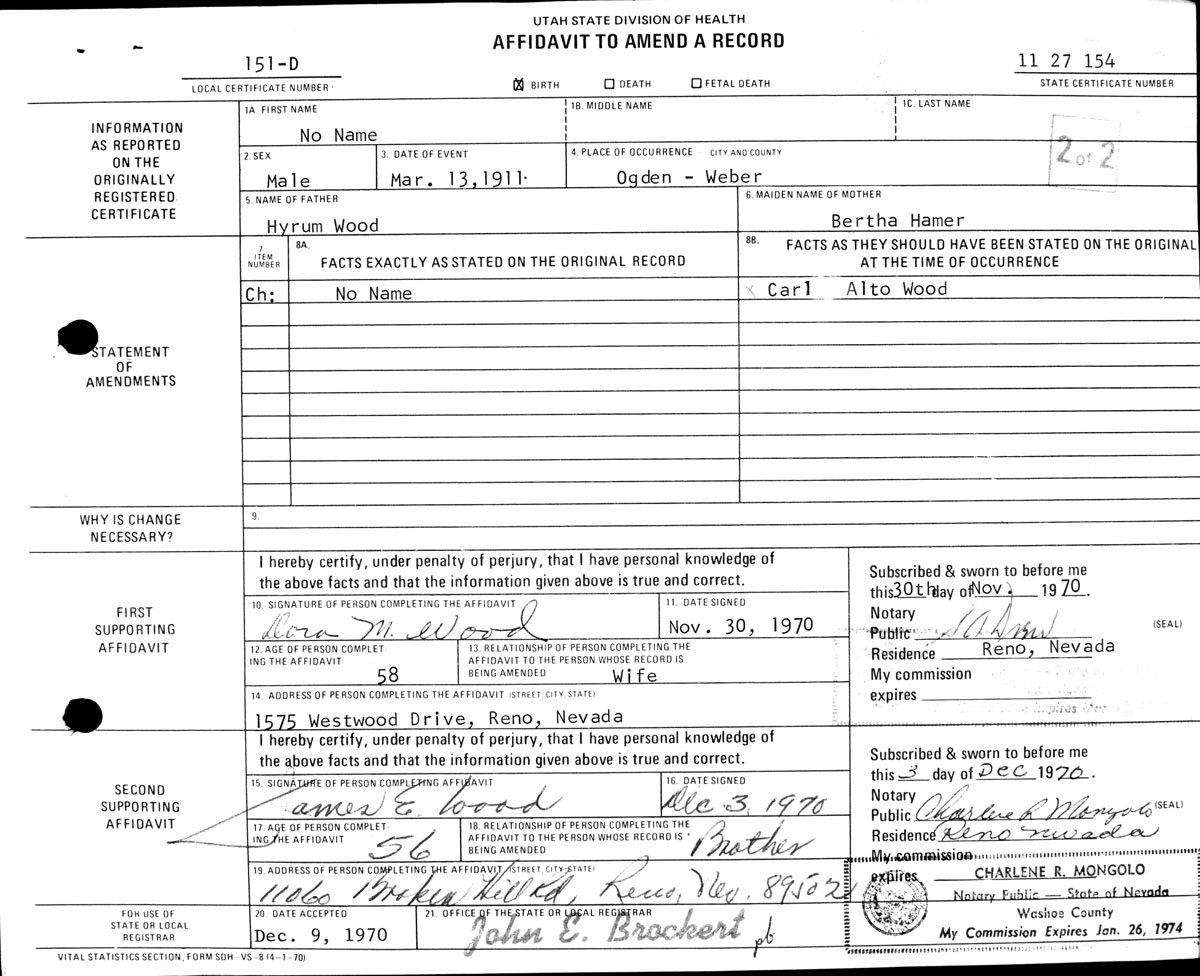 UTAH STATE DIVISION OF HEALTH
AFFIDAVIT TO AMEND A RECORD
151-D
LOCAL CERTIFICATE NUMBER
☒ BIRTH ☐ DEATH ☐ FETAL DEATH
11 27 154
STATE CERTIFICATE NUMBER
INFORMATION
AS REPORTED
ON THE
ORIGINALLY
REGISTERED
CERTIFICATE
1A. FIRST NAME
No Name
1B. MIDDLE NAME
1C. LAST NAME
2 of 2
2. SEX
Male
3. DATE OF EVENT
Mar. 13,1911
4. PLACE OF OCCURRENCE CITY AND COUNTY
Ogden - Weber
5. NAME OF FATHER
Hyrum Wood
6. MAIDEN NAME OF MOTHER
Bertha Hamer
STATEMENT
OF
AMENDMENTS
7
ITEM
NUMBER
8A.
FACTS EXACTLY AS STATED ON THE ORIGINAL RECORD
8B.
FACTS AS THEY SHOULD HAVE BEEN STATED ON THE ORIGINAL
AT THE TIME OF OCCURRENCE
Ch: No Name x Carl Alto Wood
WHY IS CHANGE
NECESSARY?
9.
FIRST
SUPPORTING
AFFIDAVIT
I hereby certify, under penalty of perjury, that I have personal knowledge of
the above facts and that the information given above is true and correct.
10. SIGNATURE OF PERSON COMPLETING THE AFFIDAVIT
Dora M. Wood
11. DATE SIGNED
Nov. 30, 1970
12. AGE OF PERSON COMPLET-
ING THE AFFIDAVIT
58
13. RELATIONSHIP OF PERSON COMPLETING THE
AFFIDAVIT TO THE PERSON WHOSE RECORD IS
BEING AMENDED Wife
14. ADDRESS OF PERSON COMPLETING THE AFFIDAVIT (STREET, CITY, STATE)
1575 Westwood Drive, Reno, Nevada
Subscribed & sworn to before me
this 30th day of Nov. 1970.
Notary
Public
(SEAL)
Residence Reno, Nevada
My commission
expires
SECOND
SUPPORTING
AFFIDAVIT
I hereby certify, under penalty of perjury, that I have personal knowledge of
the above facts and that the information given above is true and correct.
15. SIGNATURE OF PERSON COMPLETING AFFIDAVIT
James E. Wood
16. DATE SIGNED
Dec 3, 1970
17. AGE OF PERSON COMPLET-
ING THE AFFIDAVIT
56
18. RELATIONSHIP OF PERSON COMPLETING THE
AFFIDAVIT TO THE PERSON WHOSE RECORD IS
BEING AMENDED Brother
19. ADDRESS OF PERSON COMPLETING THE AFFIDAVIT (STREET, CITY, STATE)
11060 Broken Hill Rd, Reno, Nev. 89502
Subscribed & sworn to before me
this 3 day of Dec 1970.
Notary
Public Charlene R Mongolo (SEAL)
Residence Reno Nevada
My commission
expires
CHARLENE R. MONGOLO
Notary Public — State of Nevada
Washoe County
My Commission Expires Jan. 26, 1974
FOR USE OF
STATE OR LOCAL
REGISTRAR
20. DATE ACCEPTED
Dec. 9, 1970
21. OFFICE OF THE STATE OR LOCAL REGISTRAR
John E. Brockert pb
VITAL STATISTICS SECTION, FORM SDH - VS-8 (4-1-70)